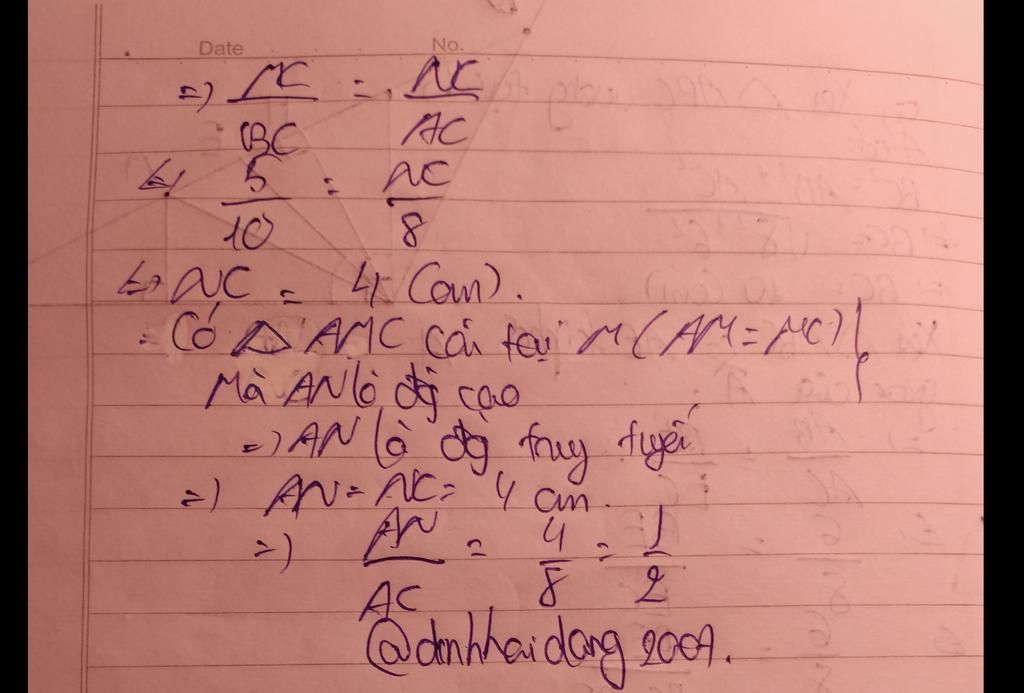 Date No.
=) MC/BC = NC/AC
<=> 5/10 = NC/8
<=> NC = 4 (cm).
- Có △ AMC cân tại M (AM = MC)
Mà AN là đg cao
=) AN là đg trug tuyến
=) AN = NC = 4 cm.
=) AN/AC = 4/8 = 1/2
@dinhhaidang2007.